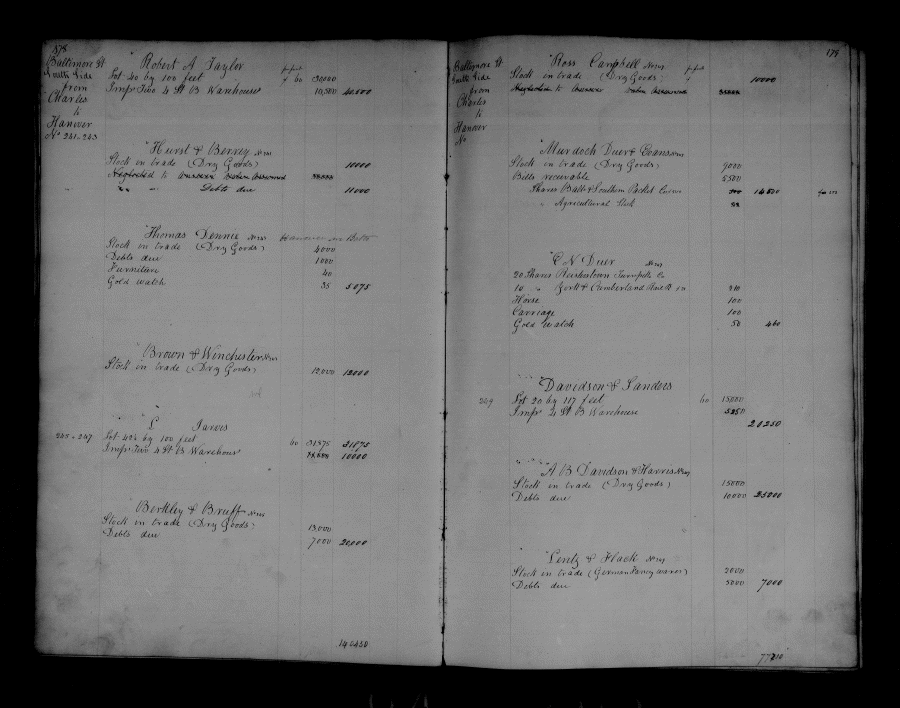 178
Baltimore St
South Side
from
Charles
to
Hanover
No 241-243
Robert A Taylor
Lot 40 by 100 feet 60 30,000
Imps Two 4 St B Warehouse 10,500 40,500
Hurst & Berry
Stock in trade (Dry Goods) 10000
Neglected to
" " Debts due 11000
Thomas Dennie
Stock in trade (Dry Goods) 4000
Debts due 1000
Furniture 40
Gold watch 35 5075
Brown & Winchester
Stock in trade (Dry Goods) 12,000 12000
L Jarvis
245-247 Lot 42½ by 100 feet 60 31875 31875
Imps Two 4 St B Warehouse 10000
Berkley & Bruff
Stock in trade (Dry Goods) 13,000
Debts due 7000 20,000
140450
179
Baltimore St
South Side
from
Charles
to
Hanover
No
Ross Campbell
Stock in trade (Dry Goods) 10000
Neglected to
Murdoch Duer & Evans
Stock in trade (Dry Goods) 9000
Bills receivable 5500
Shares Balt & Southern Packet 14500
" Agricultural Stock
C N Duer
20 Shares Reisterstown Turnpike Co
10 " York & Cumberland 210
Horse 100
Carriage 100
Gold Watch 50 460
Davidson & Sanders
249 Lot 20 by 117 feet 60 15000
Imps 4 St B Warehouse 5250
20250
A B Davidson & Harris
Stock in trade (Dry Goods) 15000
Debts due 10000 25000
Lentz & Flack
Stock in trade (German Fancy wares) 2000
Debts due 5000 7000
77210